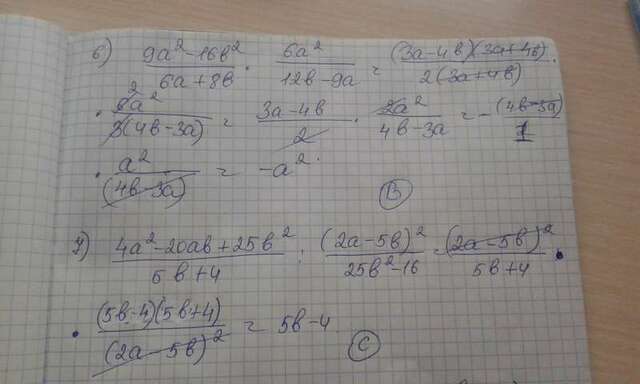 6) (9a² - 16в²)/(6a + 8в) · 6a²/(12в - 9a) = (3a - 4в)(3a + 4в)/2(3a + 4в) ·
· 6a²/3(4в - 3a) 2 = (3a - 4в)/2 · 2a²/(4в - 3a) = - (4в - 3a)/1 ·
· a²/(4в - 3a) = -a².
В
7) (4a² - 20aв + 25в²)/(5в + 4) : (2a - 5в)²/(25в² - 16) = (2a - 5в)²/(5в + 4) ·
· (5в - 4)(5в + 4)/(2a - 5в)² = 5в - 4.
С